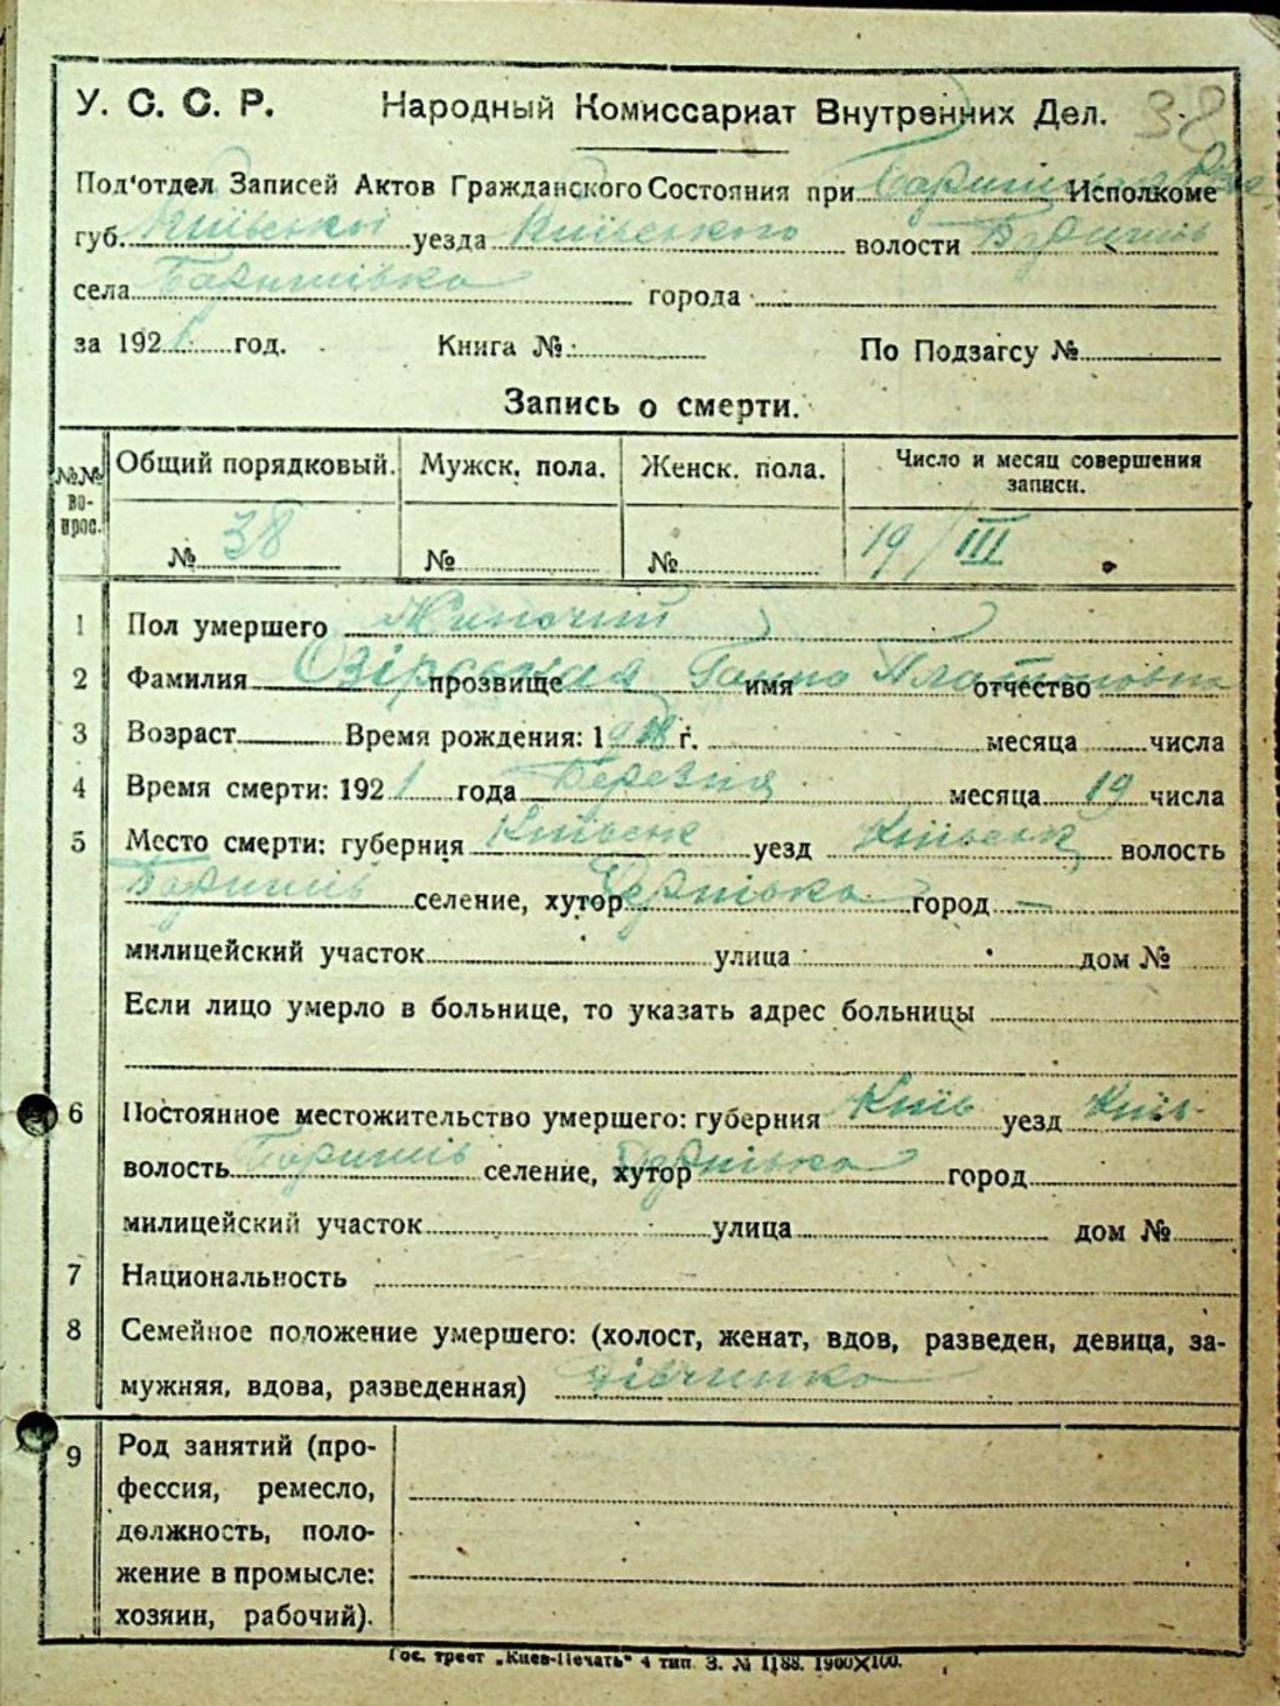 38
У. С. С. Р. Народный Комиссариат Внутренних Дел.
Под'отдел Записей Актов Гражданского Состояния при Исполкоме
губ. Київської уезда Київського волости Баришів
села Баришівка города
за 1921 год. Книга №: По Подзагсу №
Запись о смерти.
№№ во-прос. Общий порядковый. Мужск. пола. Женск. пола. Число и месяц совершения записи.
№ 38 № № 19/III
1 Пол умершего Жиночий
2 Фамилия Озірська прозвище Ганна имя Платоновна отчество
3 Возраст Время рождения: 19 г. месяца числа
4 Время смерти: 1921 года Березня месяца 19 числа
5 Место смерти: губерния Київськ уезд Київськ волость
Баришів селение, хутор Дернівка город —
милицейский участок улица дом №
Если лицо умерло в больнице, то указать адрес больницы
6 Постоянное местожительство умершего: губерния Київ уезд Київ-
волость Баришів селение, хутор Дернівка город
милицейский участок улица дом №
7 Национальность
8 Семейное положение умершего: (холост, женат, вдов, разведен, девица, за-
мужняя, вдова, разведенная) дівчинка
9 Род занятий (про-
фессия, ремесло,
должность, поло-
жение в промысле:
хозяин, рабочий).
Гос. трест „Киев-Печать" 4 тип. З. № 1188. 1900X100.